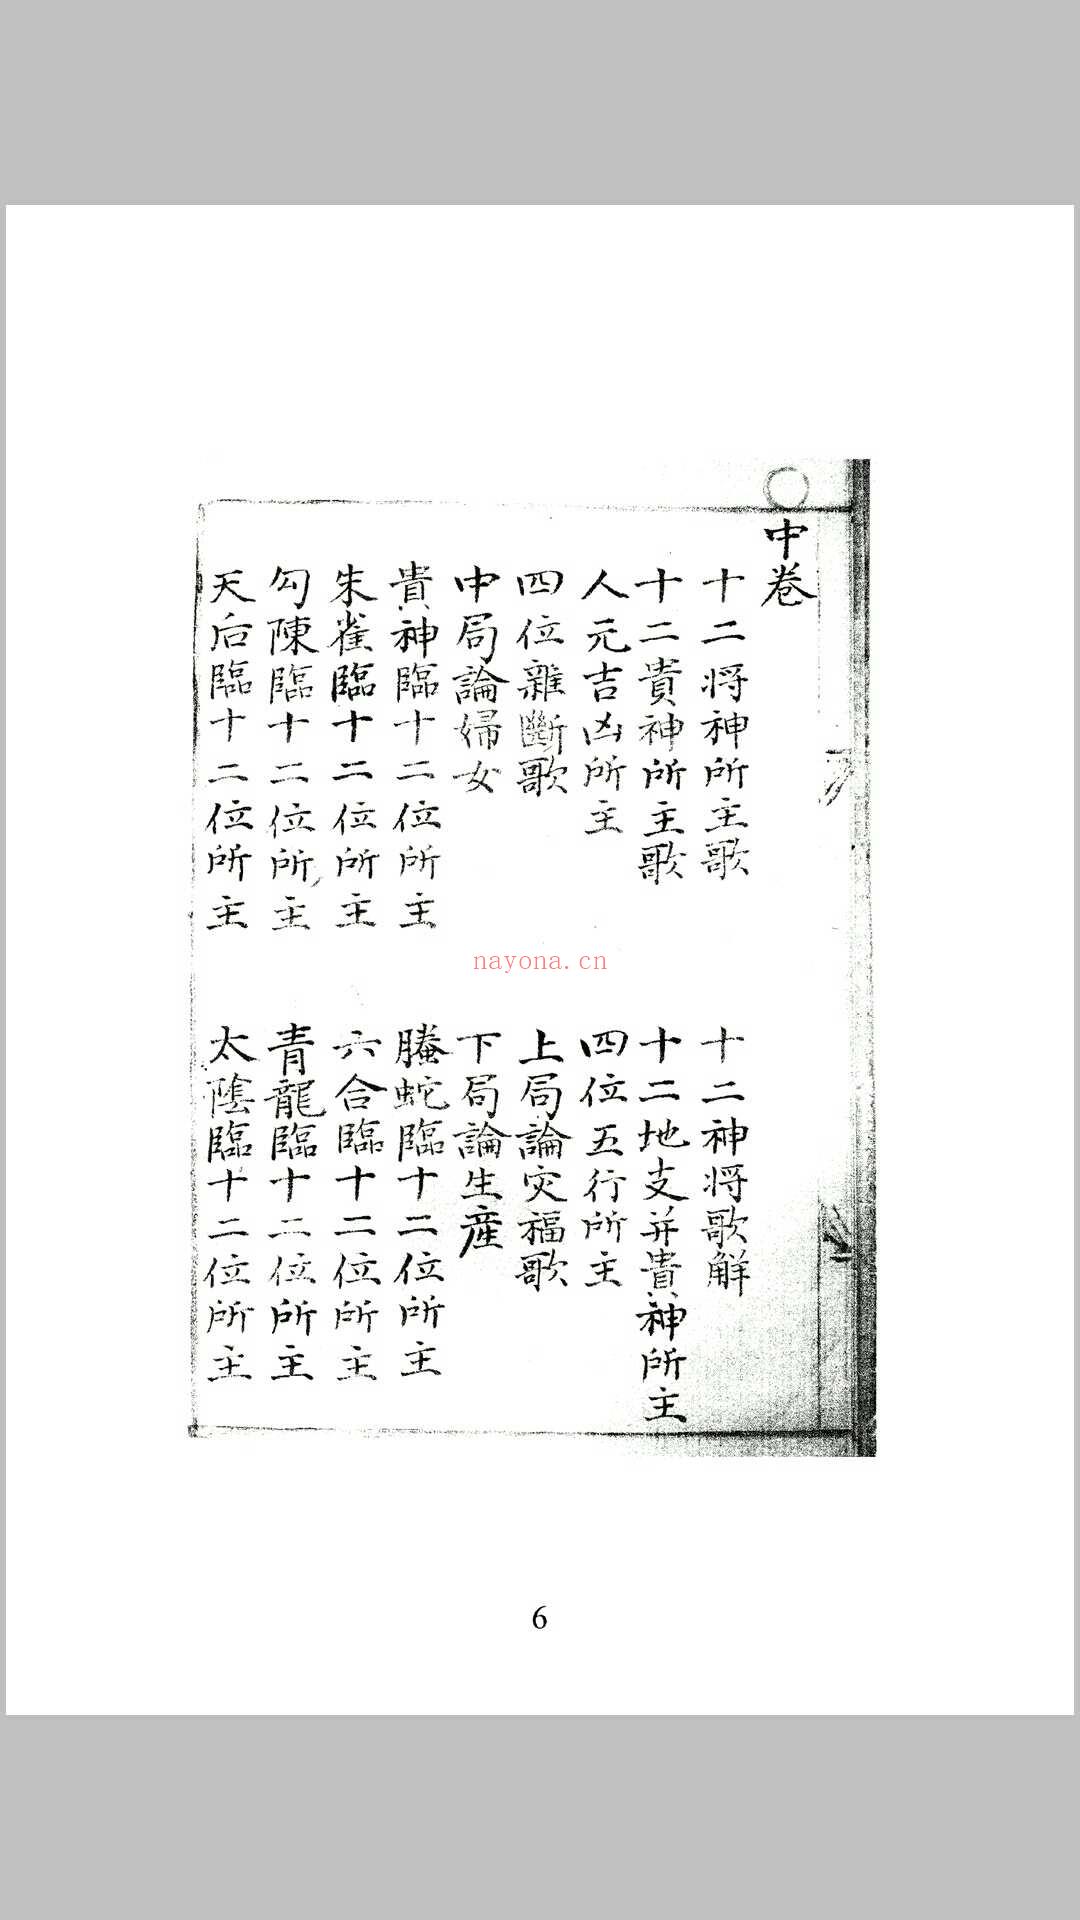 中卷
十二将神所主歌 十二神将歌解
十二貴神所主歌 十二地支并貴神所主
人元吉凶所主 四位五行所主
四位雜斷歌 上局論灾福歌
中局論婦女 下局論生産
貴神臨十二位所主 螣蛇臨十二位所主
朱雀臨十二位所主 六合臨十二位所主
勾陳臨十二位所主 青龍臨十二位所主
天后臨十二位所主 太陰臨十二位所主
nayona.cn
6